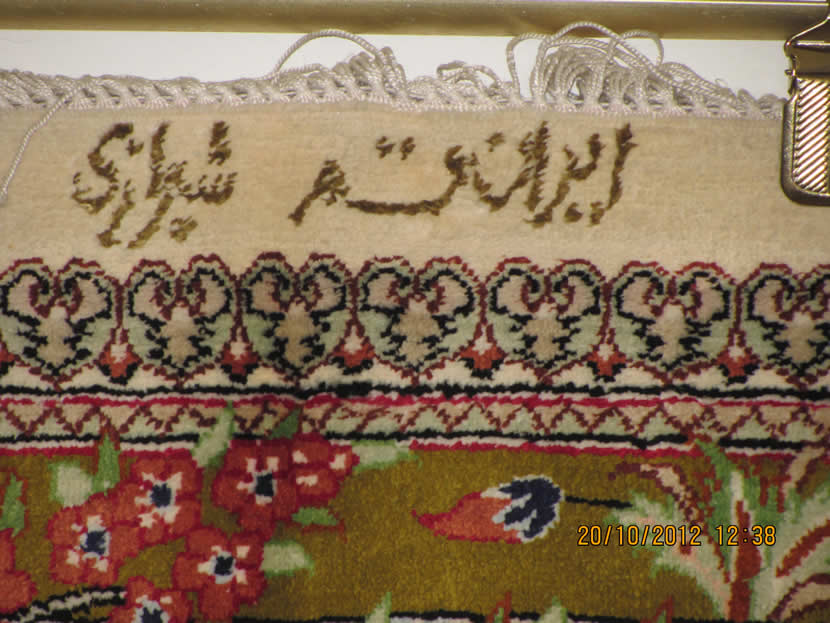 ایران قم شیرازی
20/10/2012 12:38